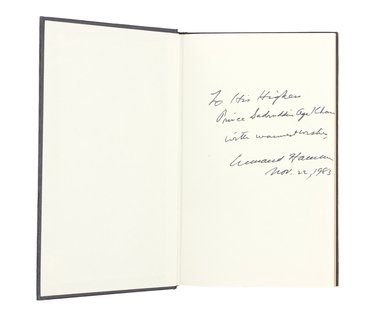 To His Highess
Prince Sadruddin Aga Khan
with warmest wishes
Armand Hammer
Nov. 22, 1983